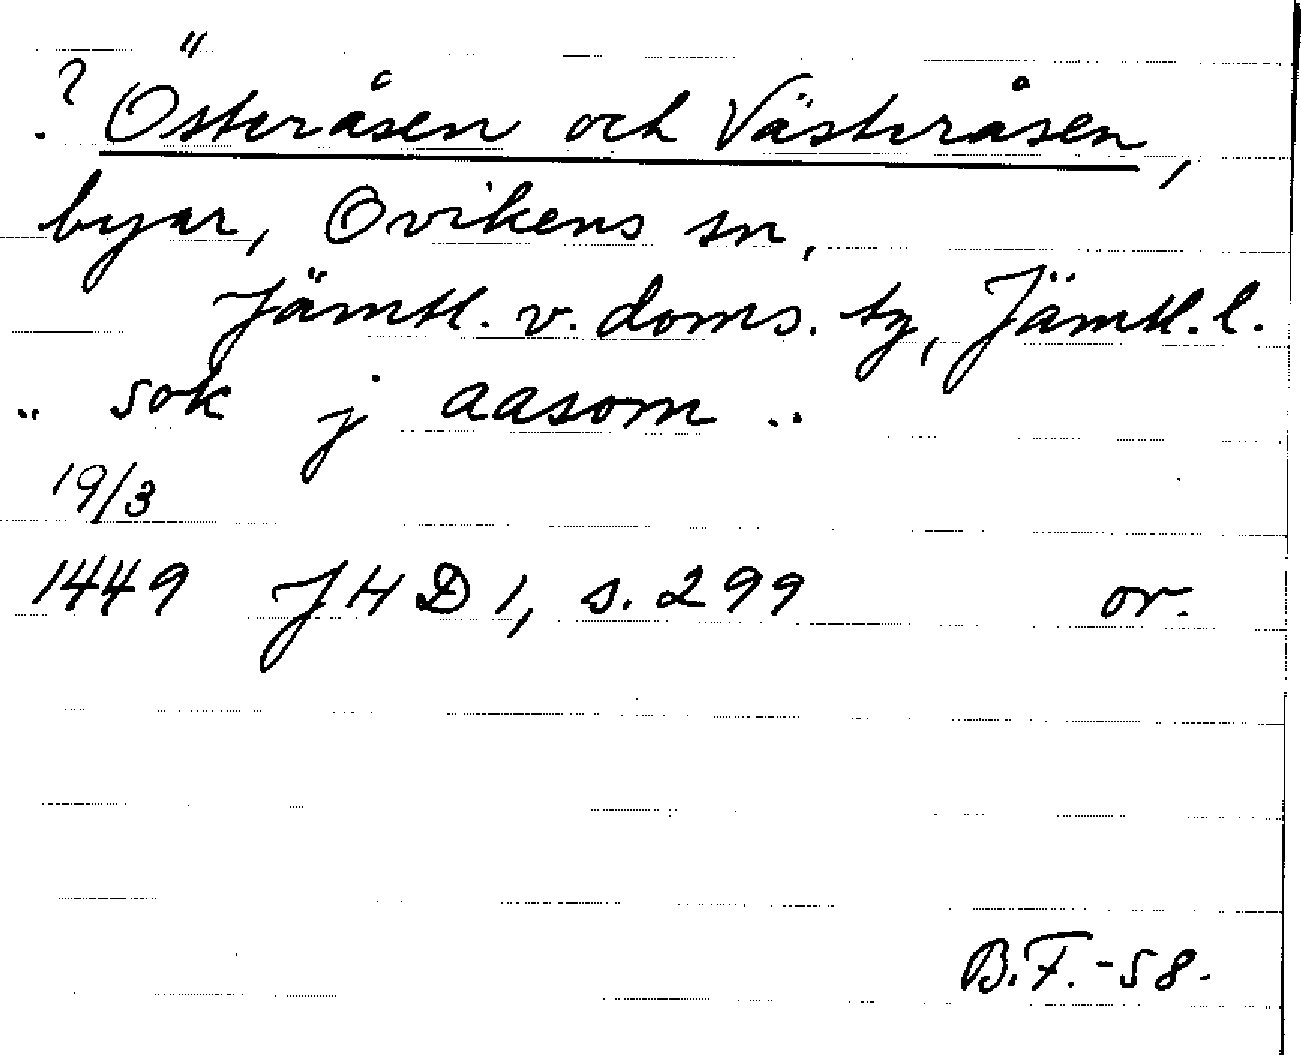 ? Österåsen och Västeråsen,
byar, Ovikens sn,
Jämtl. v. doms. tg, Jämtl. l.
.. sok j aasom ..
19/3
1449 JHD 1, s. 299 or.
B.F. -58.